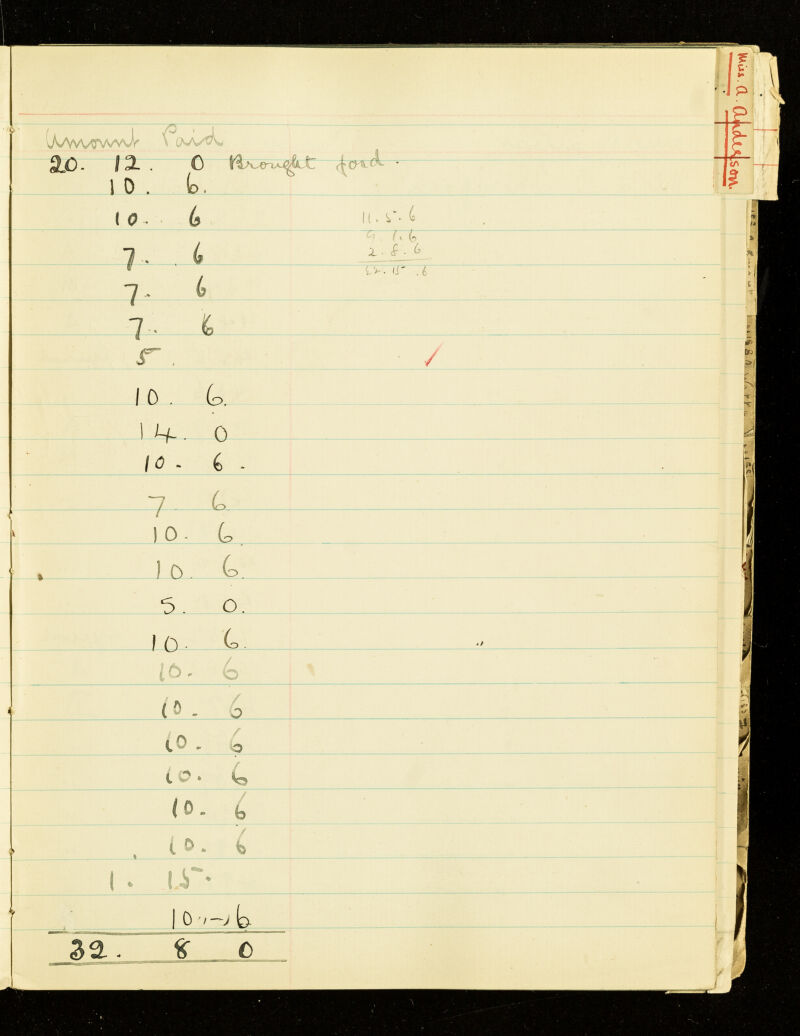 Miss. A. Anderson.
Amount Paid
20. 12. 0 Brought forward.
10. 6.
10. 6
7. 6
7. 6
7. 6
5
10. 6.
14. 0
10. 6.
7 6
10. 6.
10. 6.
5. 0.
10. 6.
10. 6
10. 6
10. 6
10. 6
10. 6
10. 6
1. 15.
10 . - 6
32. 8 0
11. 5. 6
9 1. 6
2. 8. 6
15 . 6